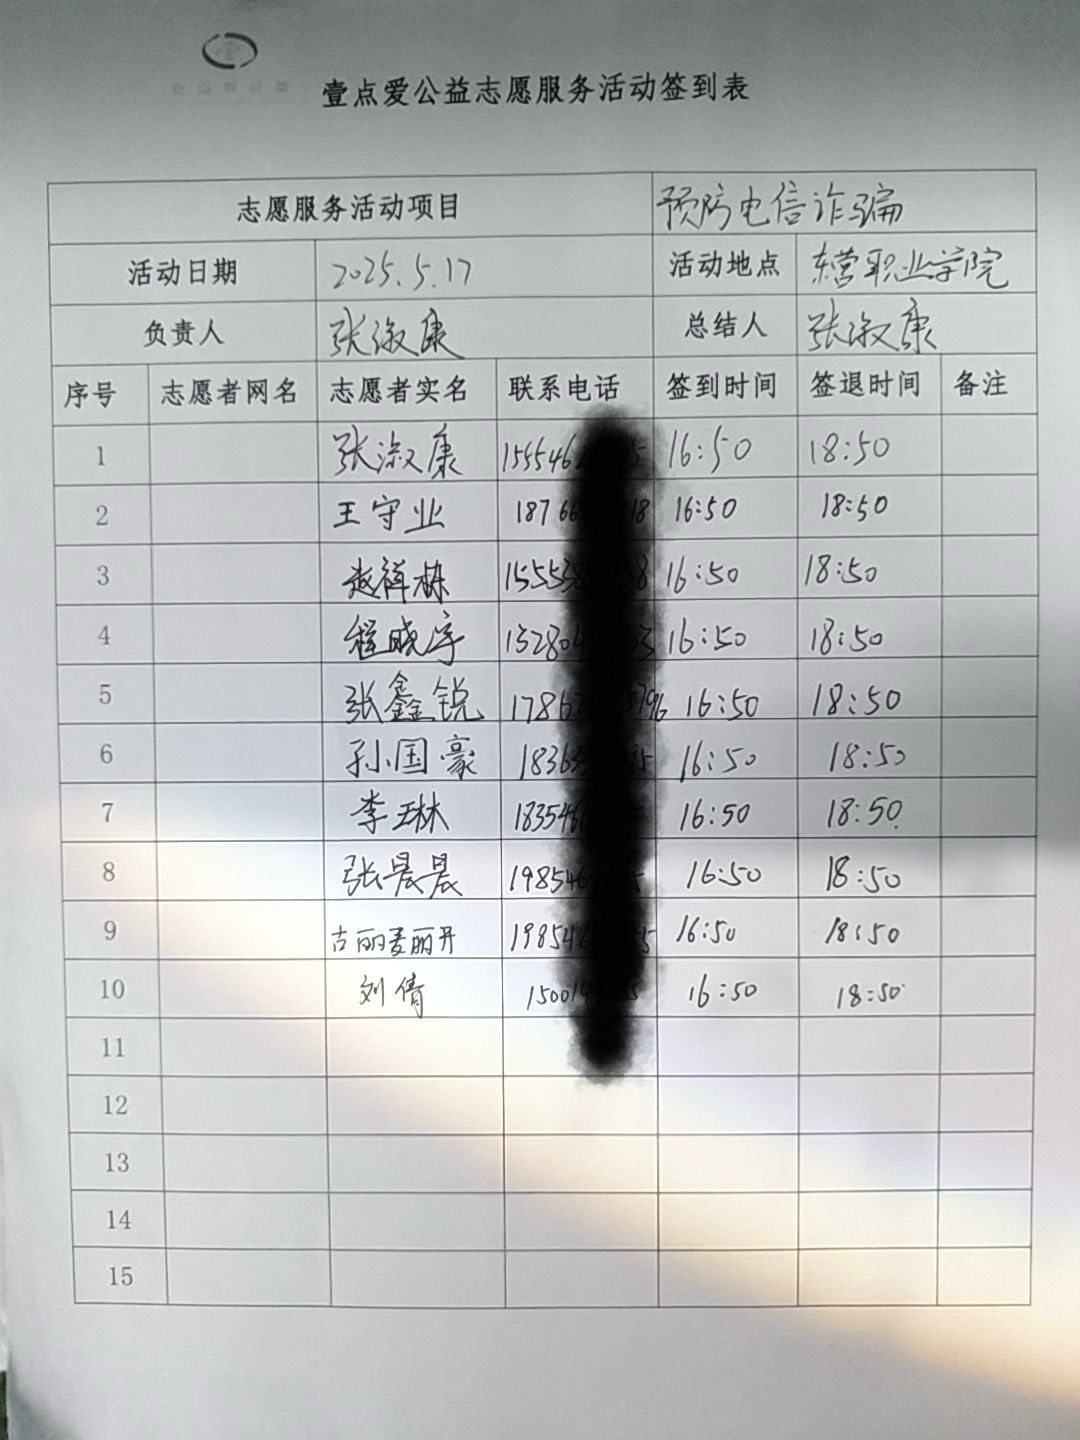 壹点爱公益志愿服务活动签到表
志愿服务活动项目 预防电信诈骗
活动日期 2025.5.17 活动地点 东营职业学院
负责人 张淑康 总结人 张淑康
序号 志愿者网名 志愿者实名 联系电话 签到时间 签退时间 备注
1 张淑康 16:50 18:50
2 王守业 16:50 18:50
3 赵祥栋 16:50 18:50
4 程晓宇 16:50 18:50
5 张鑫锐 16:50 18:50
6 孙国豪 16:50 18:50
7 李琳 16:50 18:50
8 张晨晨 16:50 18:50
9 古丽麦丽开 16:50 18:50
10 刘倩 16:50 18:50
11
12
13
14
15